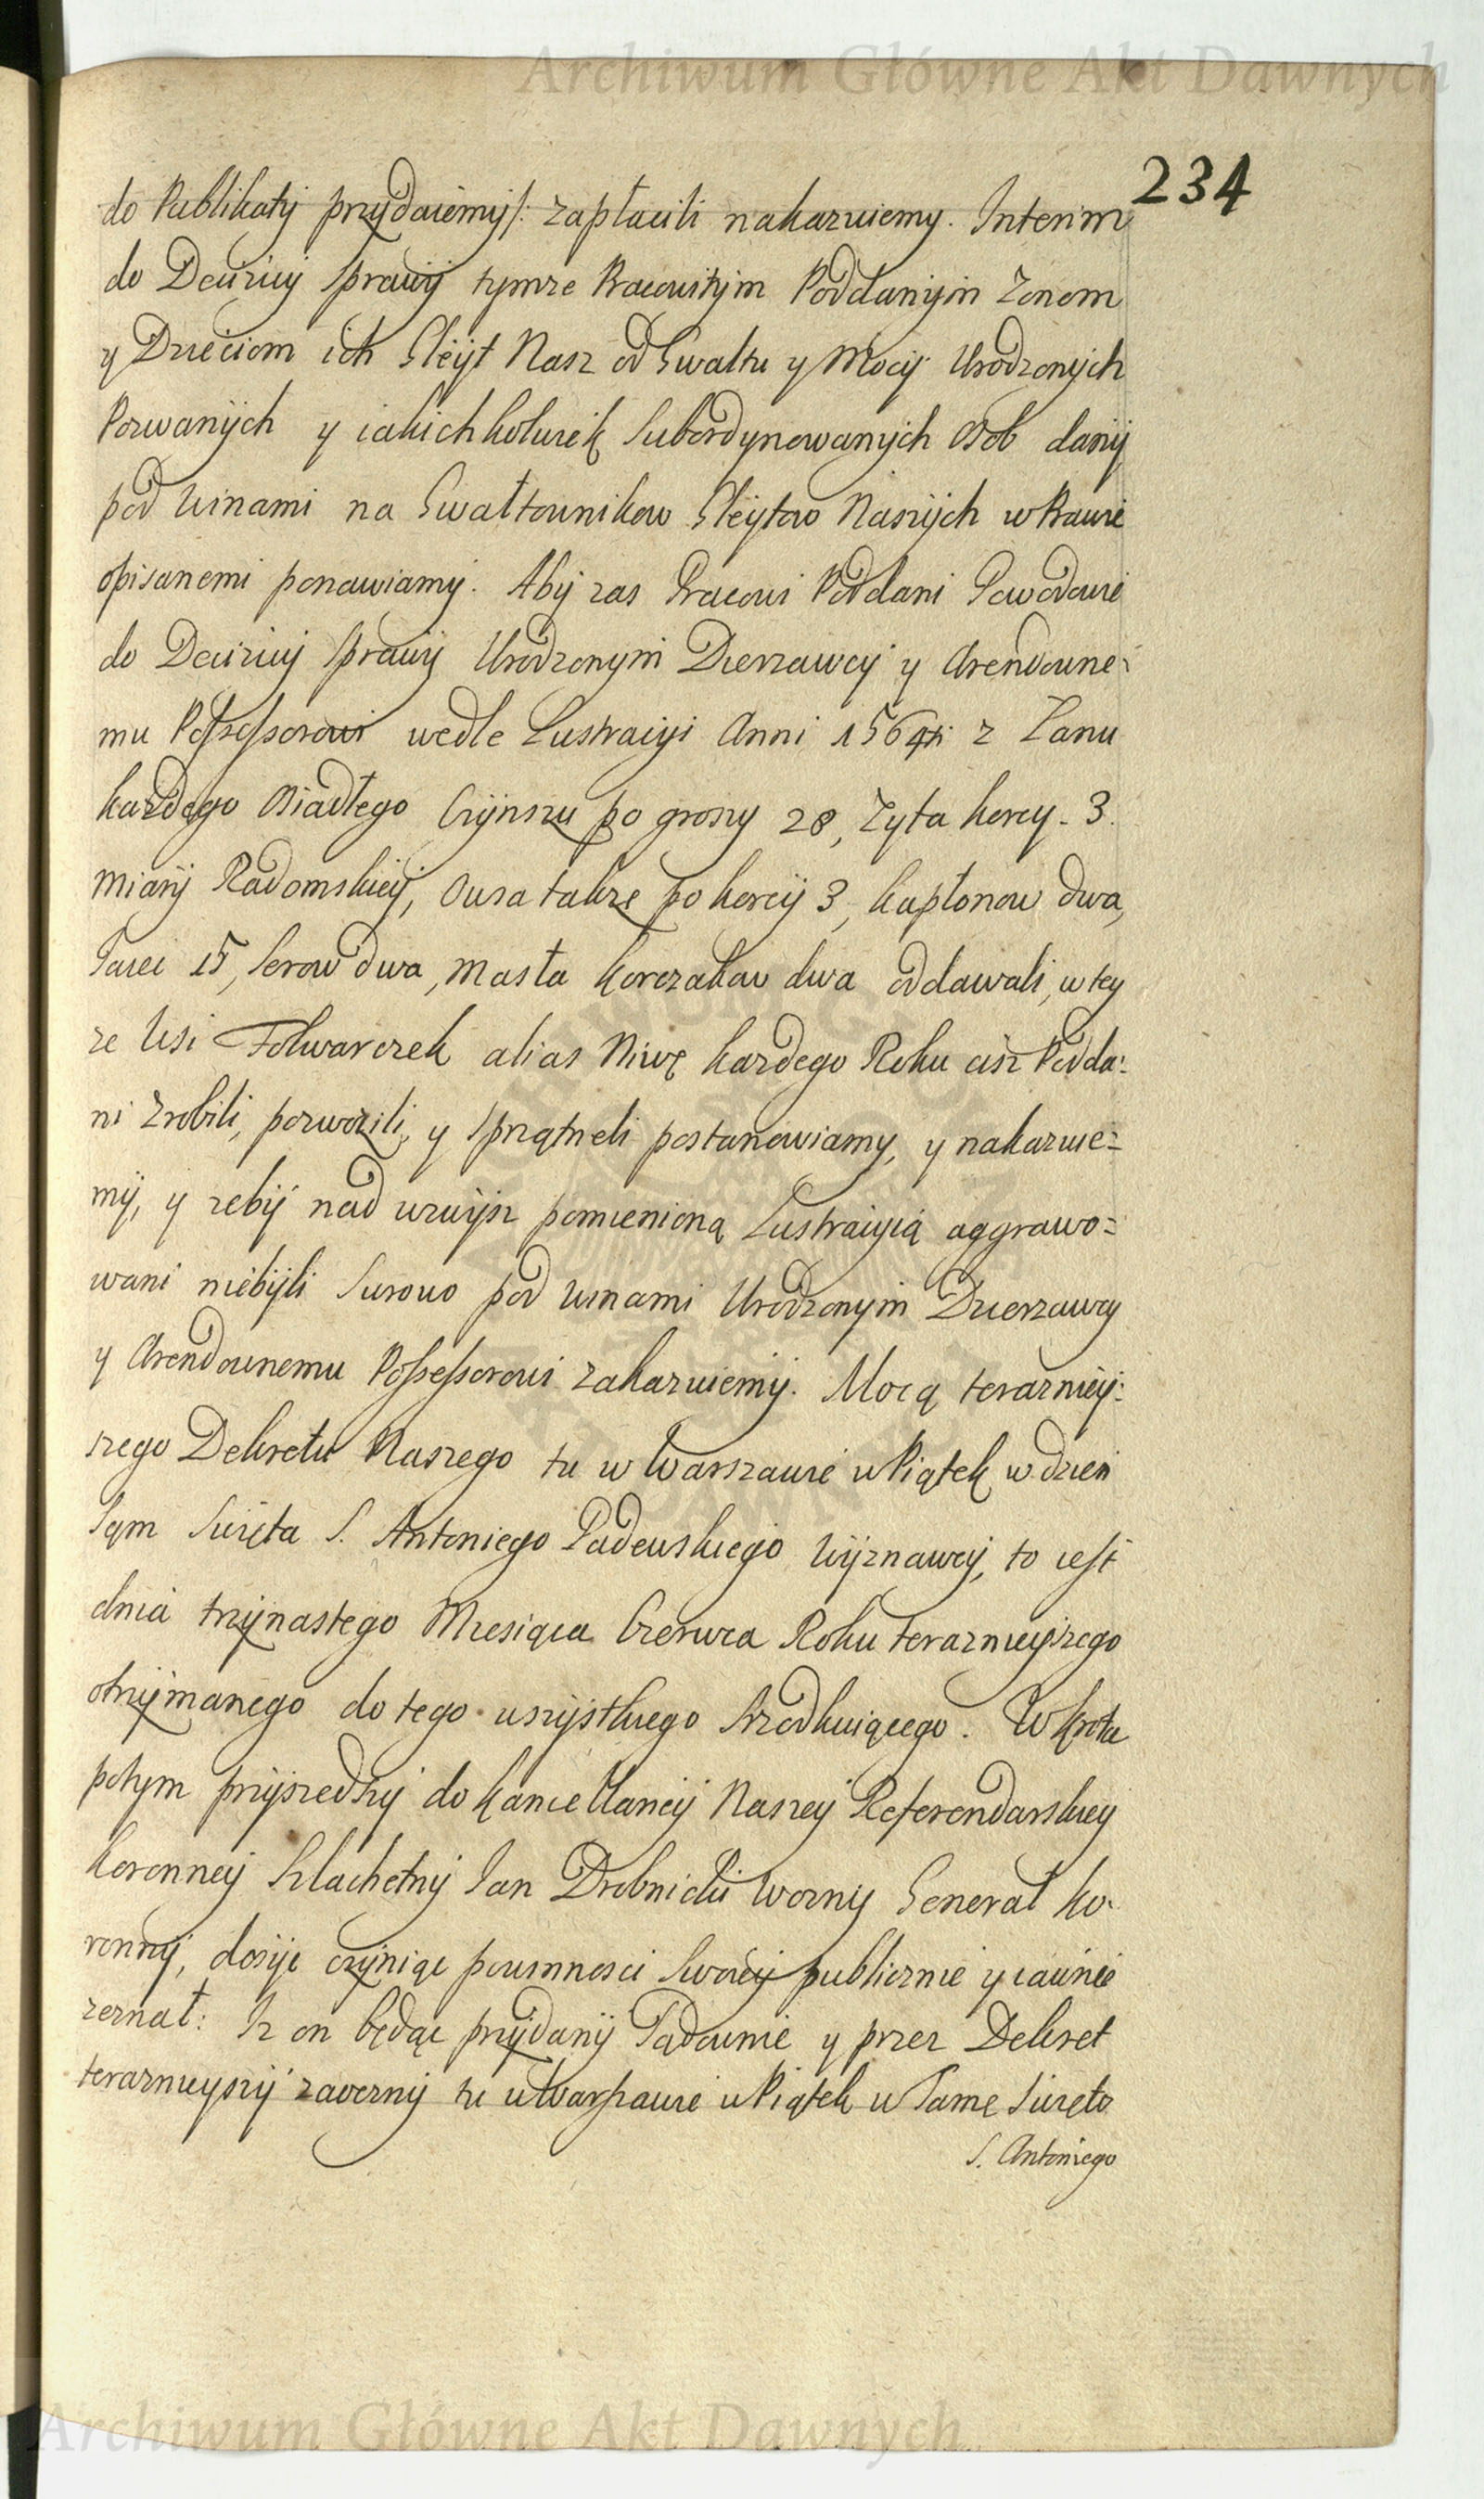 Archiwum Główne Akt Dawnych
234
do Publikaty przydaiemy/: zapłacili nakazuiemy. Interim
do Decizij Sprawy tymze Pracowitym Poddanym Zonom
y Dzieciom ich Gleyt Nasz od Gwałtu y Mocy Urodzonych
Pozwanych y iakichkolwiek Subordynowanych Osob dany
pod winami na Gwałtownikow Gleytow Naszych w Prawie
opisanemi ponawiamy. Aby zas Pracowi Poddani Powodowie
do Decizij Sprawy Urodzonym Dzierzawcy y Arendowne-
mu Possessorowi wedle Lustracyi Anni 1564ti z Łanu
kazdego Osiadłego Czynszu po groszy 28, Zyta korcy-3.
miary Radomskiey, Owsa takze po korcy 3, kapłonow dwa,
Jaiec 15, Serow dwa, Masła korczakow dwa oddawali, w tey
ze Wsi Folwarczek alias Niwę kazdego Roku ciz Podda:
ni zrobili, pozwozili, y Sprzątneli postanowiamy, y nakazuie=
my, y zeby nad wzwysz pomienioną Lustracyią aggrawo=
wani niebyli Surowo pod winami Urodzonym Dzierzawcy
y Arendownemu Possessorowi zakazuiemy. Mocą terazniey:
szego Dekretu Naszego tu w Warszawie w Piątek w dzien
Sąm Swięta S. Antoniego Padewskiego Wyznawcy, to iest
dnia trzynastego Miesiąca Czerwca Roku terazniejszego
otrzymanego do tego wszystkiego srzodkuiącego. Wkrotce
potym przyszedszy do kancellaryi Naszey Referendarskiey
koronney Szlachetny Jan Drobnicki Wozny Generał ko-
ronny, dosyć czyniąc powinnosci Swoiey publicznie y iawnie
zeznał: Iz on będąc przydany Sądownie y przez Dekret
terazniejszy zaoczny tu w Warszawie w Piątek w Same Swięto
S. Antoniego
Archiwum Główne Akt Dawnych